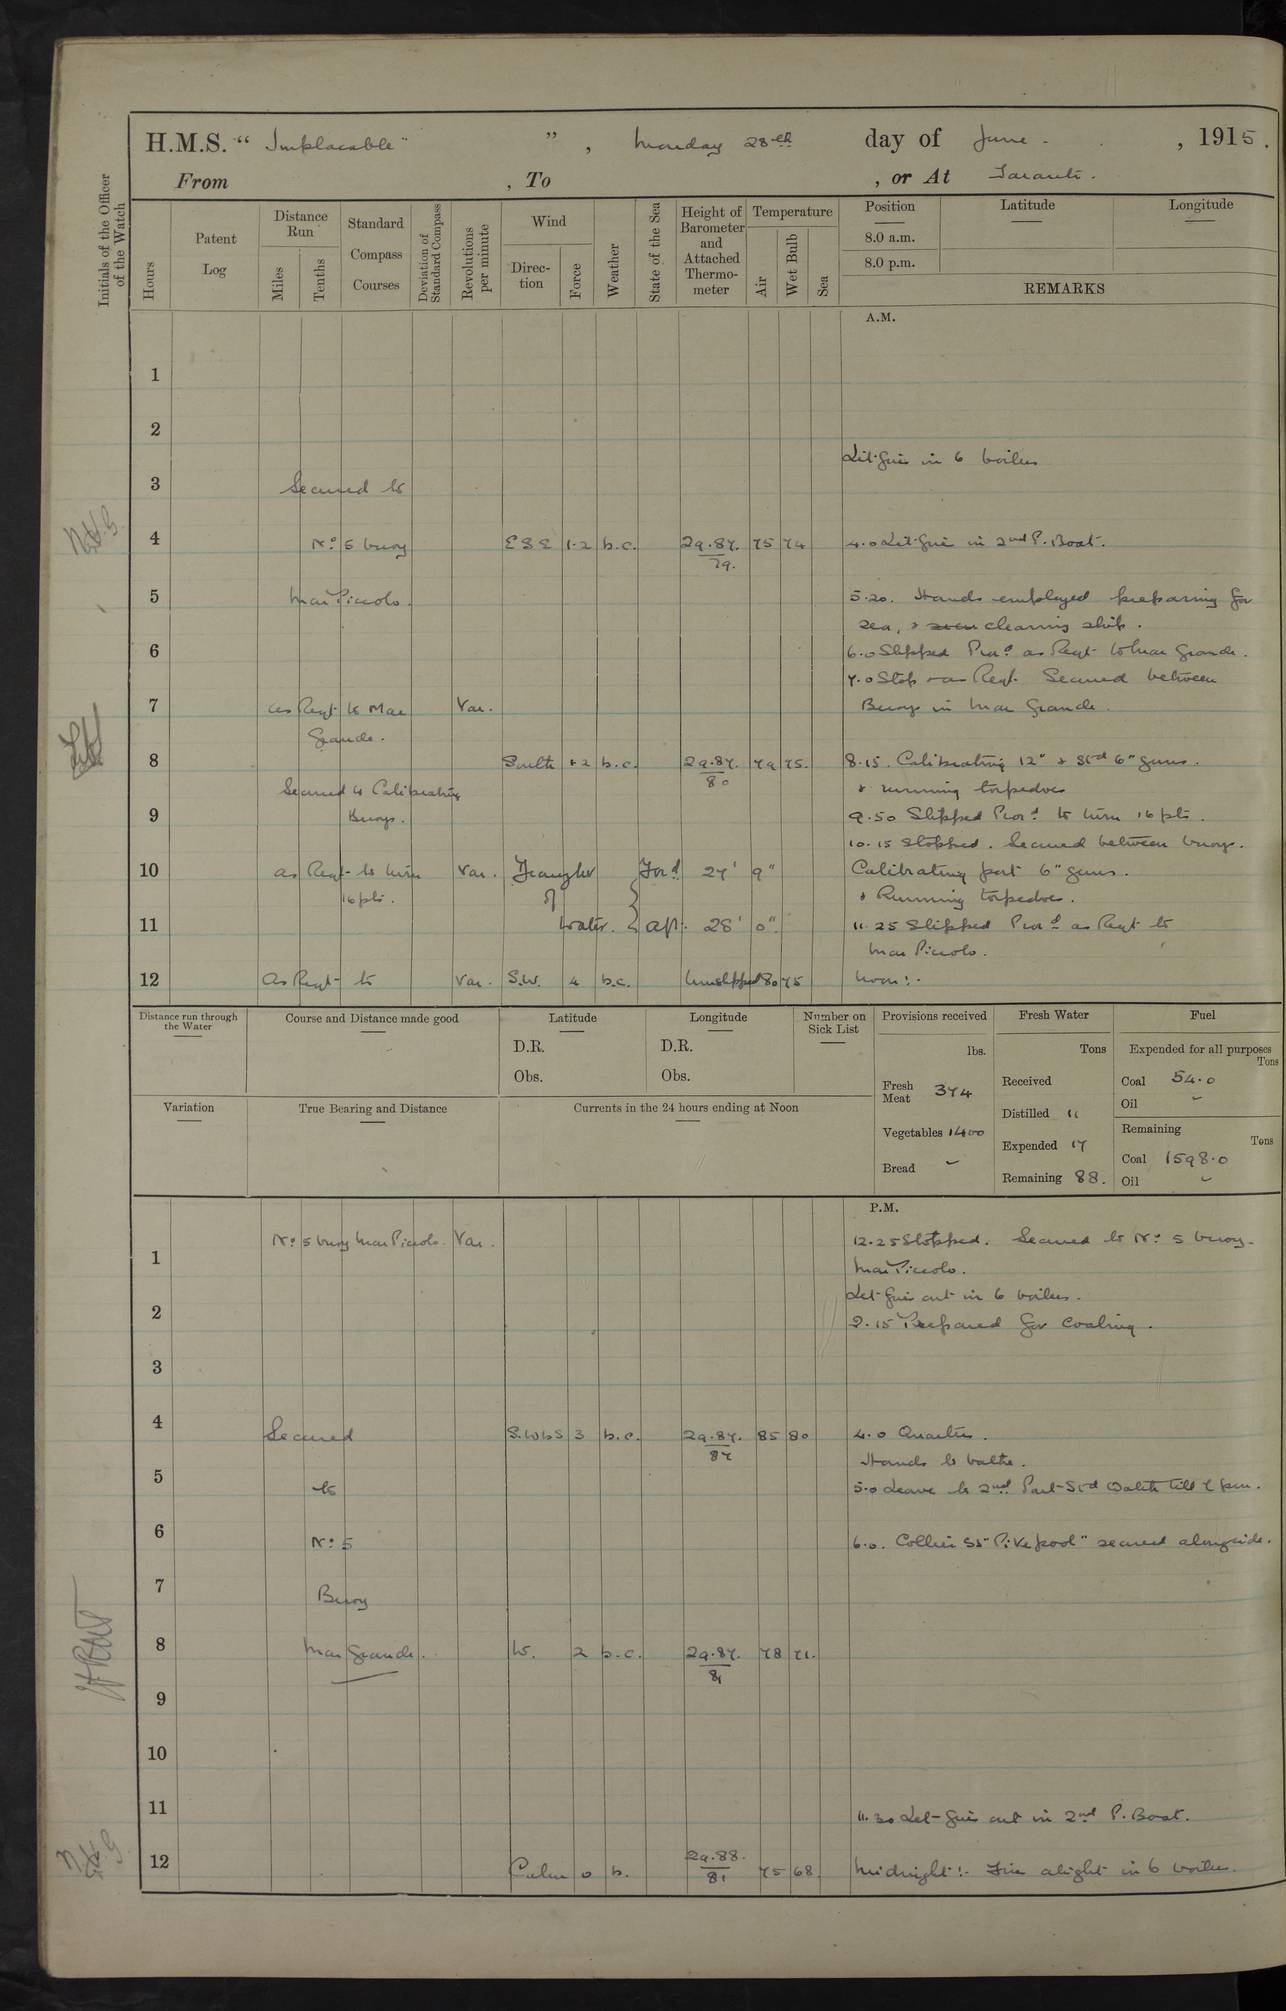 H.M.S. “ Implacable ” , Monday 28th day of June , 1915.
From , To , or At Taranto.
Initials of the Officer of the Watch
Hours
Patent Log
Distance Run
Miles
Tenths
Standard Compass Courses
Deviation of Standard Compass
Revolutions per minute
Wind
Direction
Force
Weather
State of the Sea
Height of Barometer and Attached Thermometer
Temperature
Air
Wet Bulb
Sea
Position
Latitude
Longitude
8.0 a.m.
8.0 p.m.
REMARKS
A.M.
1
2
Lit fires in 6 boilers
3 Secured to
4 No. 5 buoy ESE 1.2 b.c. 29.87. 79. 75 74 4.0 Lit fires in 2nd P. Boat.
5 Mar Piccolo. 5.20. Hands employed preparing for
sea, & clearing ship.
6 6.0 Slipped Proc'd as Reqt to Mar Grande.
7.0 Stop as Reqt. Secured between
7 as Reqt to Mar Var. Buoys in Mar Grande.
Grande.
8 South 1.2 b.c. 29.87. 80 79 75. 8.15. Calibrating 12" & Stbd 6" guns.
Secured to Calibrating & running torpedoes
9 Buoys. 9.50 Slipped Proc'd to turn 16 pts.
10.15 Stopped. Secured between buoys.
10 as Reqt to turn Var. Draught Ford 27' 9" Calibrating port 6" guns.
16 pts. of & Running torpedoes.
11 Water. aft. 28' 0". 11.25 Slipped Proc'd as Reqt to
Mar Piccolo.
12 As Reqt to Var. S.W. 4 b.c. Unshipped 80 75 Noon:-
Distance run through the Water
Course and Distance made good
Latitude
D.R.
Obs.
Longitude
D.R.
Obs.
Number on Sick List
Provisions received
lbs.
Fresh Meat 374
Vegetables 1400
Bread -
Fresh Water
Tons
Received
Distilled 11
Expended 17
Remaining 88.
Fuel
Expended for all purposes
Tons
Coal 54.0
Oil -
Remaining
Tons
Coal 1598.0
Oil -
Variation
True Bearing and Distance
Currents in the 24 hours ending at Noon
P.M.
No. 5 buoy Mar Piccolo. Var. 12.25 Stopped. Secured to No. 5 buoy.
1 Mar Piccolo.
Let fires out in 6 boilers.
2 2.15 Prepared for Coaling.
3
4 Secured S.WbS 3 b.c. 29.87. 87 85 80 4.0 Quarters.
Hands to bathe.
5 to 5.0 Leave to 2nd Part Stbd Watch till 7 pm.
6 No. 5 6.0. Collier SS "Pikepool" secured alongside.
7 Buoy
8 Mar Grande. W. 2 b.c. 29.87. 81 78 71.
9
10
11 11.30 Let fires out in 2nd P. Boat.
12 Calm 0 b. 29.88. 81 75 68. Midnight:- Fires alight in 6 boilers.